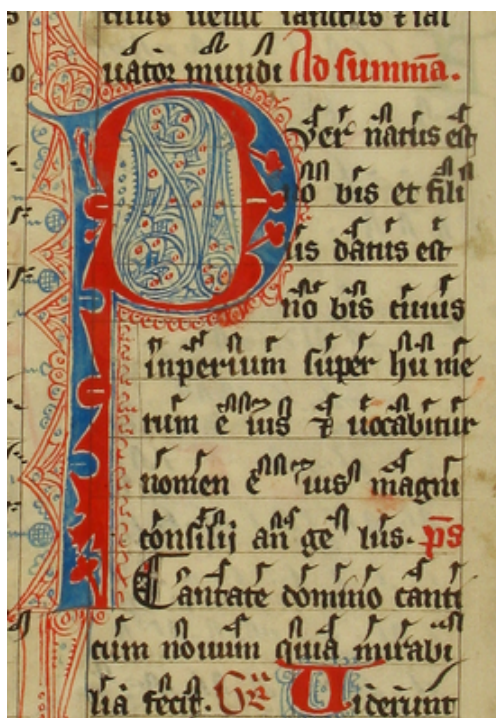 uator mundi Ad summã.
Puer natus est
no bis et fili
us datus est
no bis cuius
inperium super hu me
rum e ius ⁊ uocabitur
nomen e ius magni
consilij an ge lus. p̃s
Cantate domino canti
cum nouum quia mirabi
lia fecit. Gr̃ Uiderunt